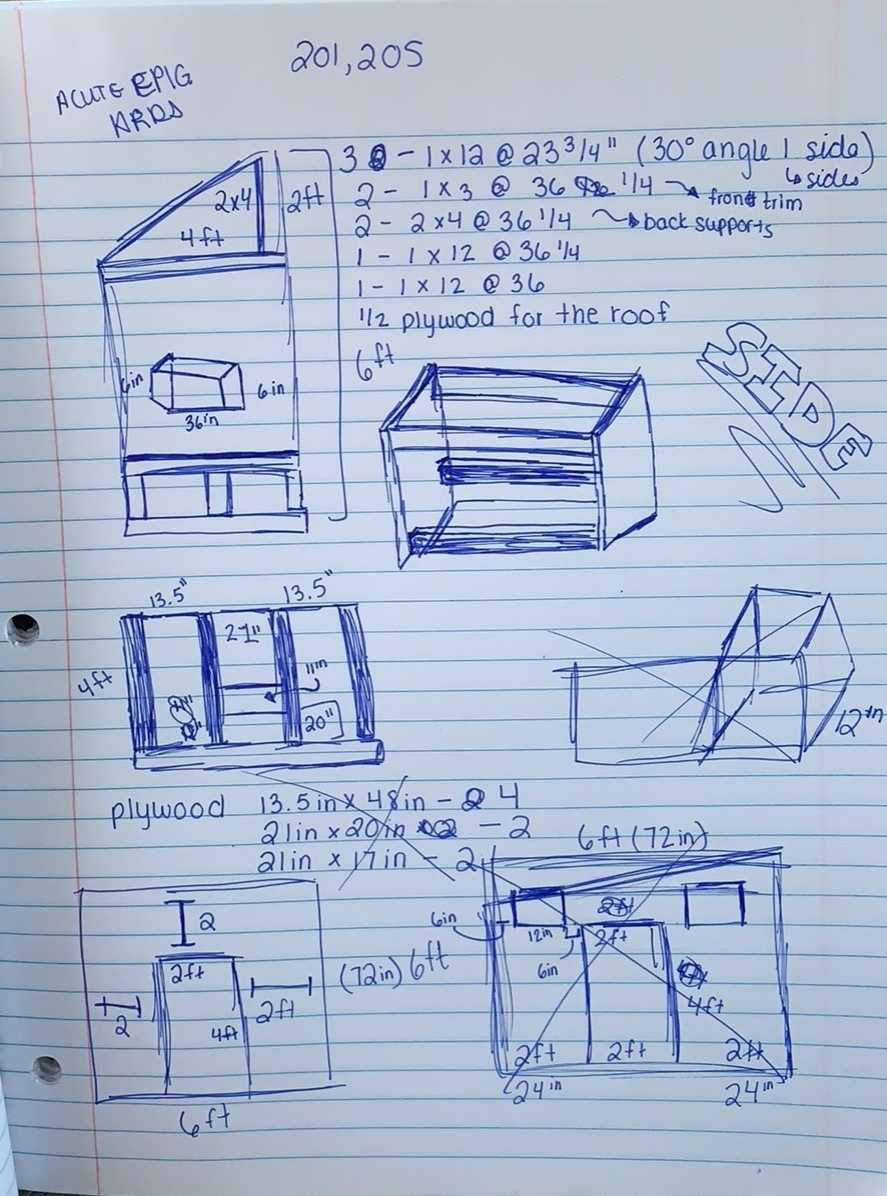 201, 205
ACUTE EPIG
ARDS
3 - 1 x 12 @ 23 3/4" (30° angle 1 side)
↳ sides
2 - 1 x 3 @ 36 1/4 → front trim
2 - 2 x 4 @ 36 1/4 → back supports
1 - 1 x 12 @ 36 1/4
1 - 1 x 12 @ 36
1/2 plywood for the roof
2x4
2ft
4ft
6ft
6in
6in
36in
SIDE
13.5"
13.5"
21"
4ft
11in
20"
12in
plywood 13.5in x 48in - 4
21in x 20in - 2
21in x 17in - 2
6ft (72in)
2
2ft
2
4ft
2ft
6ft
(72in) 6ft
6in
12in
2ft
2ft
6in
4ft
2ft
2ft
2ft
24in
24in